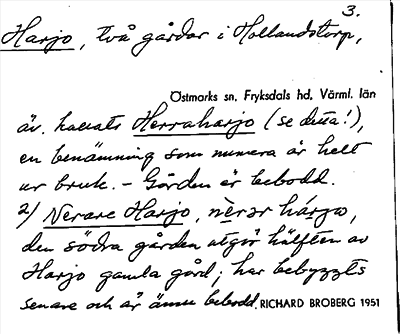 3.
Harjo, två gårdar i Hollandstorp,
Östmarks sn, Fryksdals hd, Värml. län
äv. kallats Herraharjo (se detta!),
en benämning som numera är helt
ur bruk. – Gården är bebodd.
2) Nerare Harjo, nèrər hárjɷ,
den södra gården utgör hälften av
Harjo gamla gård; har bebyggts
senare och är ännu bebodd. RICHARD BROBERG 1951